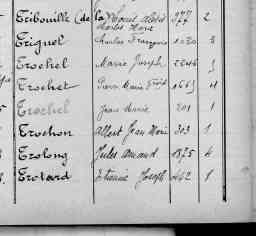 Tribouille (de la) 977 2
Charles Marie
Triquet Charles François 3
Trochel Marie Joseph 2246 3
Trochet Pierre Marie 1663 4
Trochel Jean Marie 201 1
Trochon Albert Jean Marie 303 1
Trolong Jules Amand 1875 4
Trotard Etienne Joseph 462 1